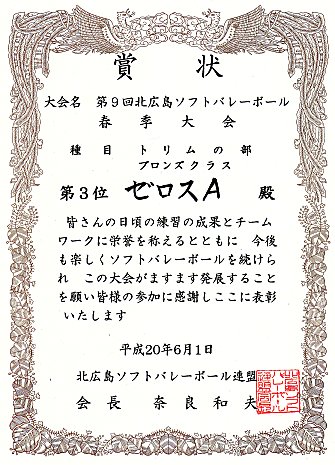 賞状
大会名 第9回北広島ソフトバレーボール
春季大会
種目 トリムの部
ブロンズクラス
第3位 ゼロスA 殿
皆さんの日頃の練習の成果とチーム
ワークに栄誉を称えるとともに 今後
も楽しくソフトバレーボールを続けら
れ この大会がますます発展すること
を願い皆様の参加に感謝しここに表彰
いたします
平成20年6月1日
北広島ソフトバレーボール連盟
会長 奈良和夫